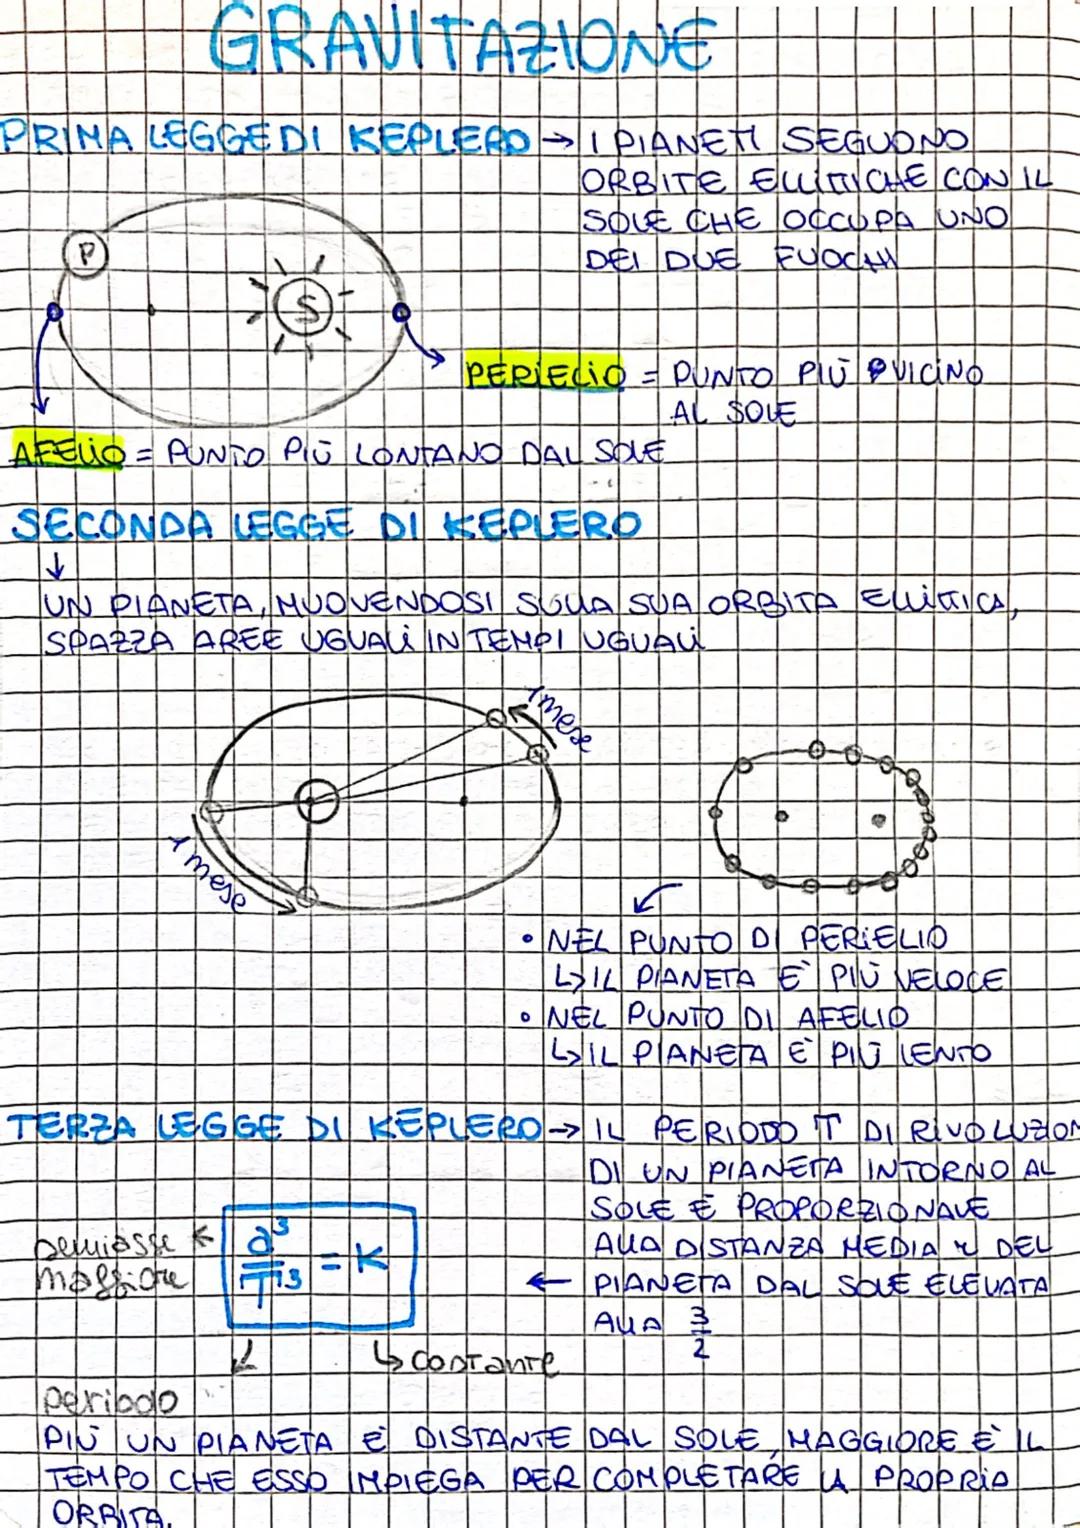 GRAVITAZIONE
PRIMA LEGGE DI KEPLERO → I PIANETI SEGUONO
ORBITE ELLITTICHE CON IL
SOLE CHE OCCUPA UNO
DEI DUE FUOCHI
P
S
PERIELIO = PUNTO PIÙ VICINO
AL SOLE
AFELIO = PUNTO PIÙ LONTANO DAL SOLE
SECONDA LEGGE DI KEPLERO
↓
UN PIANETA, MUOVENDOSI SULLA SUA ORBITA ELLITTICA,
SPAZZA AREE UGUALI IN TEMPI UGUALI
1 mese
1 mese
• NEL PUNTO DI PERIELIO
↳ IL PIANETA E' PIÙ VELOCE
• NEL PUNTO DI AFELIO
↳ IL PIANETA E' PIÙ LENTO
TERZA LEGGE DI KEPLERO → IL PERIODO T DI RIVOLUZION
DI UN PIANETA INTORNO AL
SOLE È PROPORZIONALE
ALLA DISTANZA MEDIA r DEL
← PIANETA DAL SOLE ELEVATA
ALLA 3/2
semiasse
maggiore
a³/T³ = K
↳ costante
periodo
PIÙ UN PIANETA È DISTANTE DAL SOLE, MAGGIORE È IL
TEMPO CHE ESSO IMPIEGA PER COMPLETARE LA PROPRIA
ORBITA.